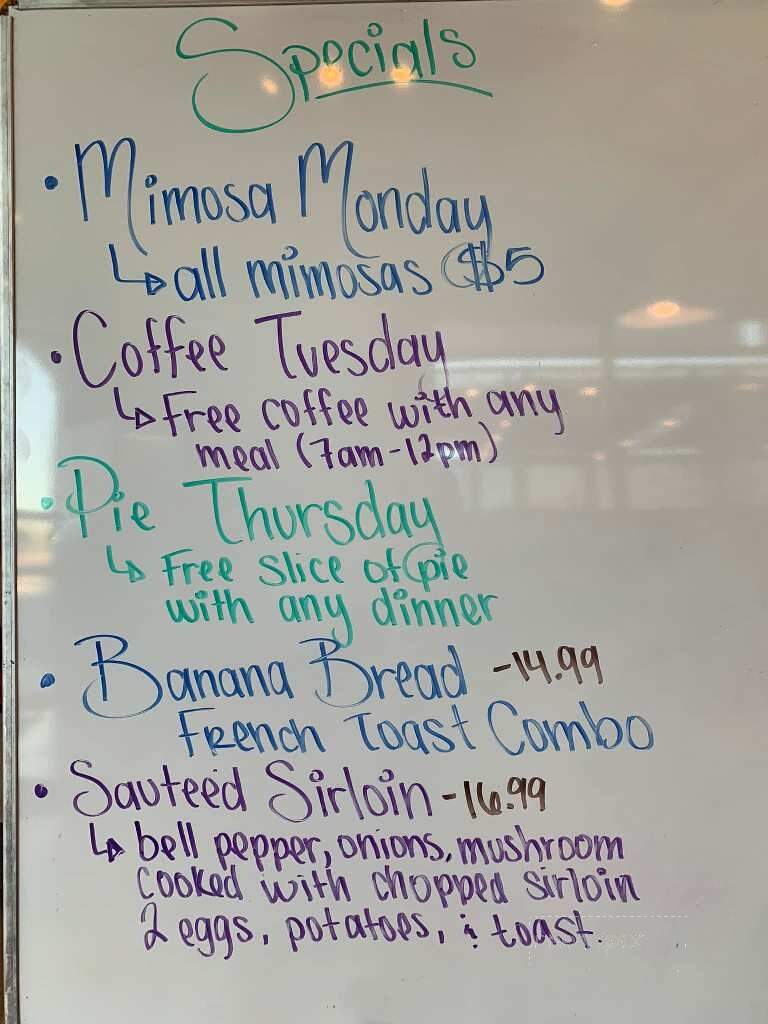 Specials
• Mimosa Monday
↳ all mimosas $5
• Coffee Tuesday
↳ Free coffee with any
meal (7am-12pm)
• Pie Thursday
↳ Free slice of pie
with any dinner
• Banana Bread -14.99
French Toast Combo
• Sauteed Sirloin -16.99
↳ bell pepper, onions, mushroom
cooked with chopped sirloin
2 eggs, potatoes, & toast.